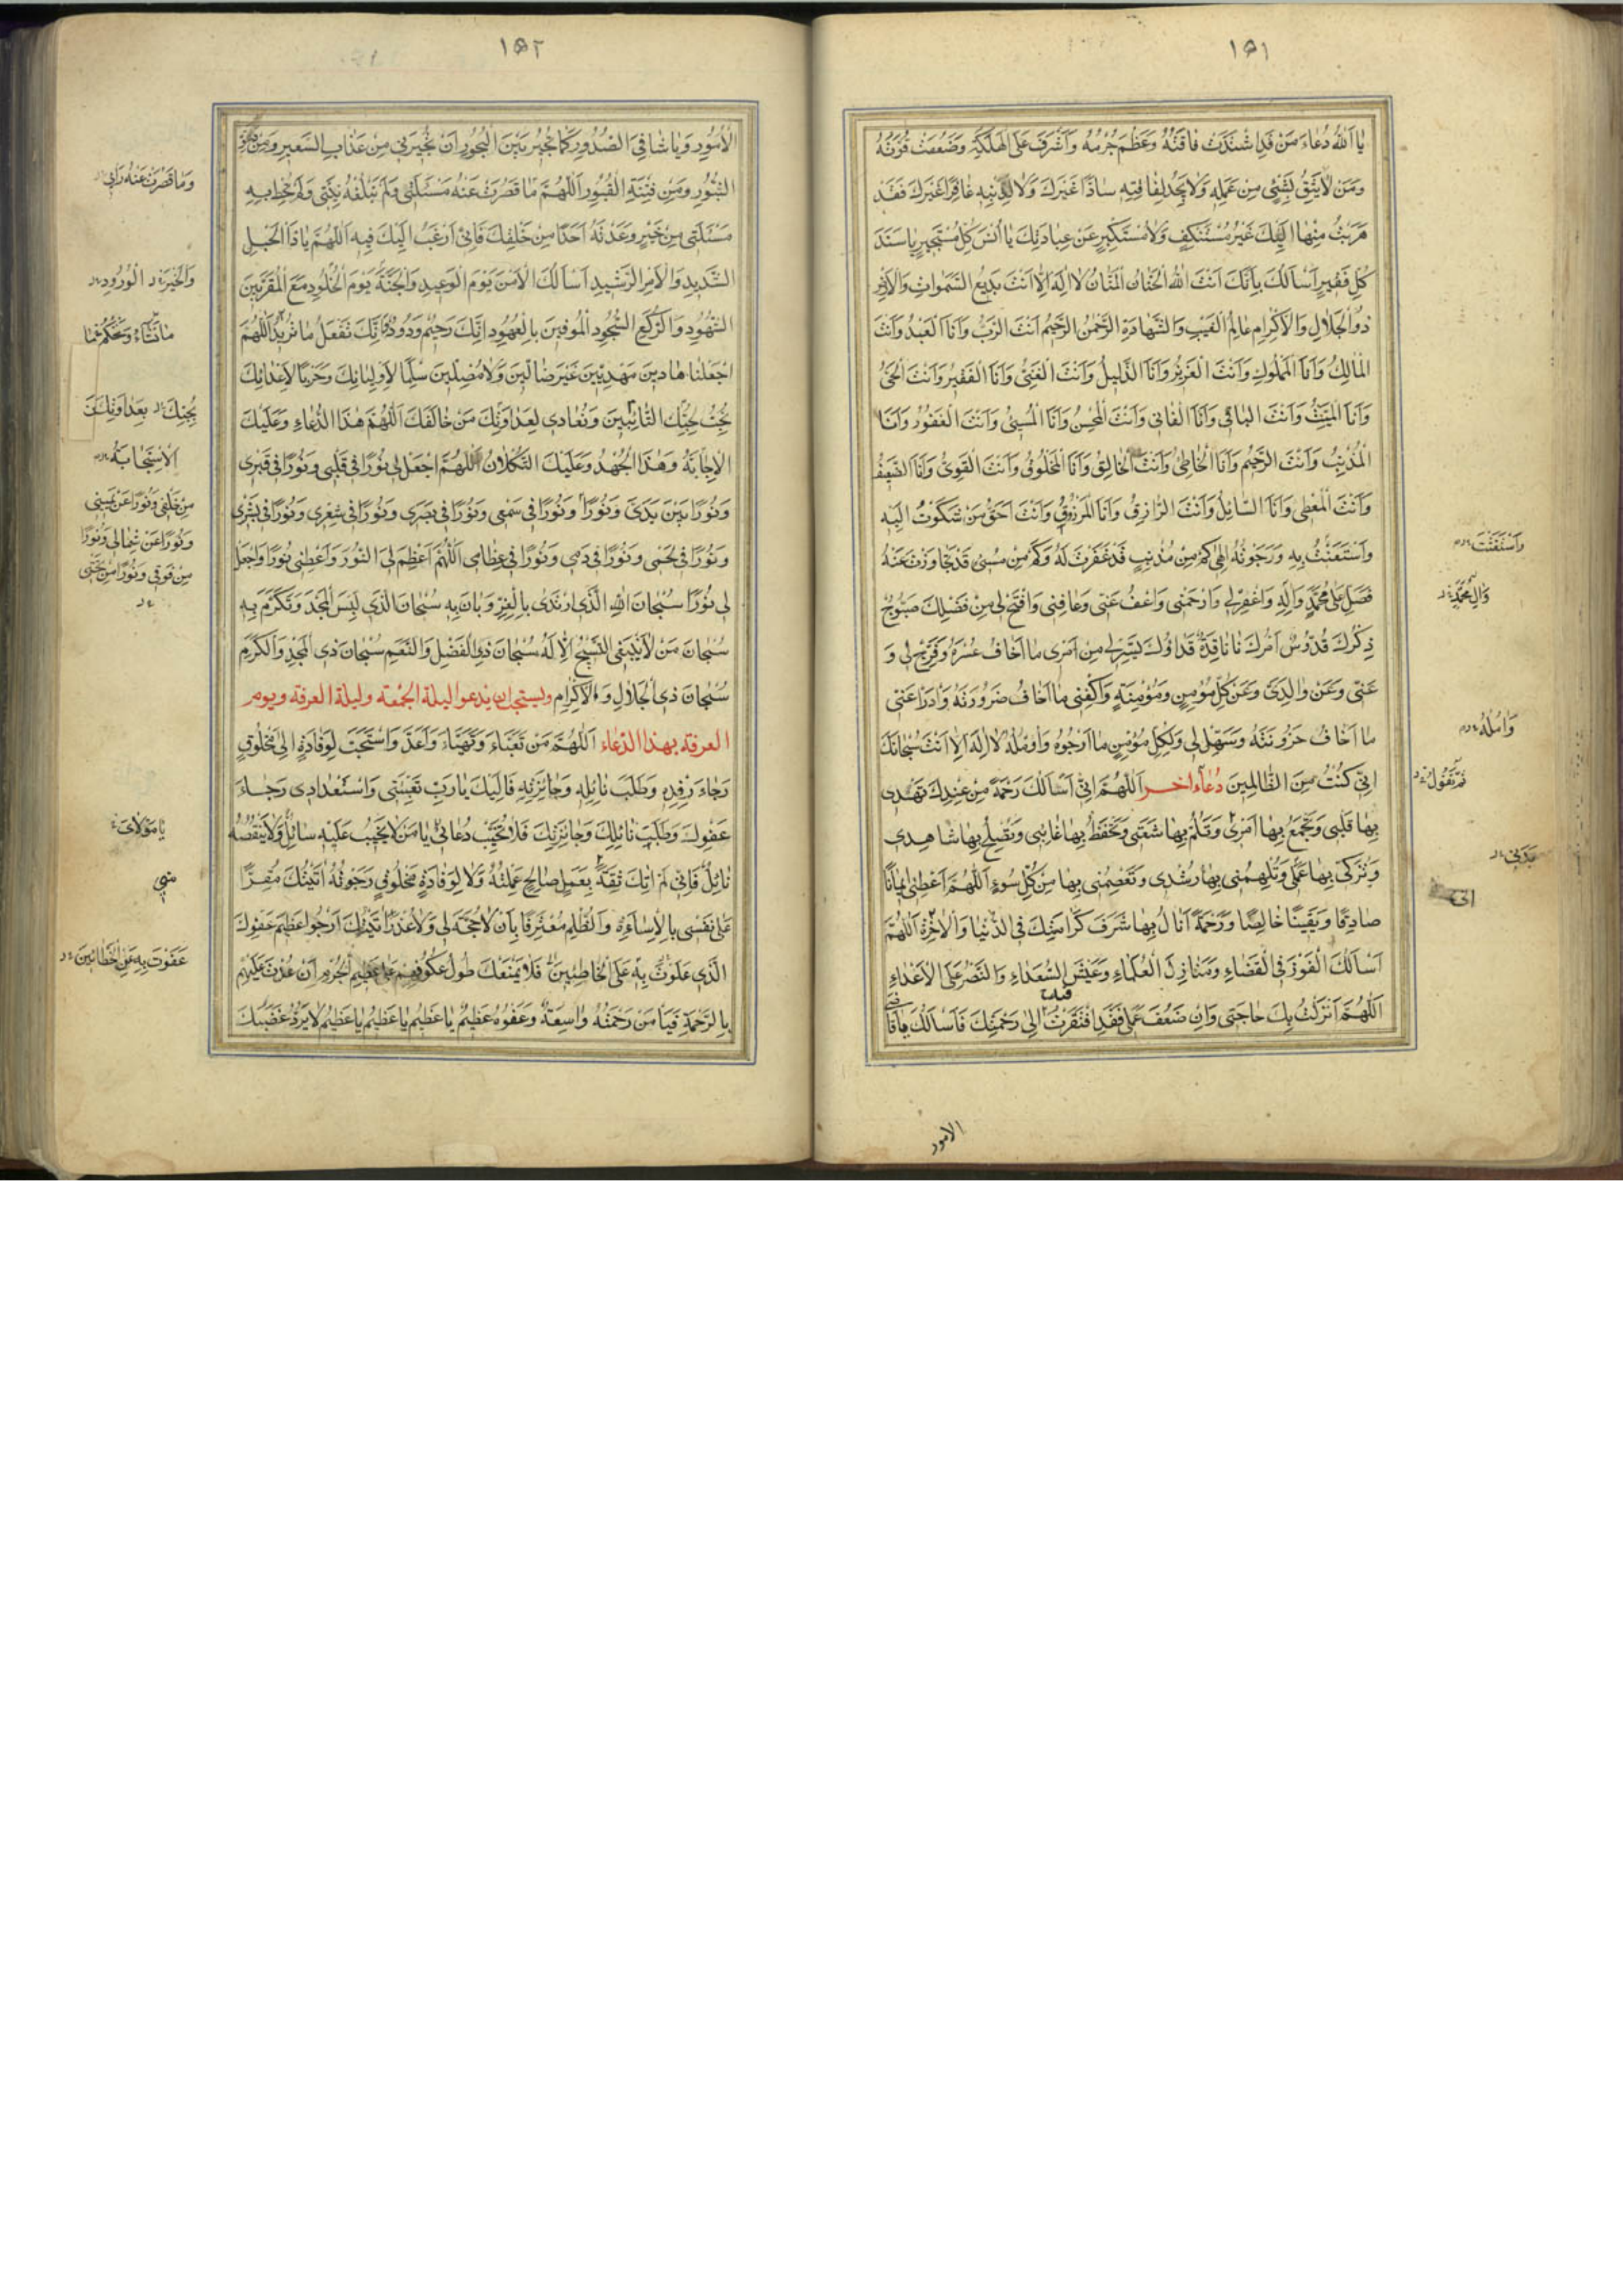 ١٥١
يا اَللهُ دُعاءَ مَنْ قَدِ اشْتَدَّتْ فاقَتُهُ وَعَظُمَ جُرْمُهُ وَاَشْرَفَ عَلَى الْهَلَكَةِ وَضَعُفَتْ قُوَّتُهُ
وَمَنْ لا يَثِقُ بِشَيْءٍ مِنْ عَمَلِهِ وَلا يَجِدُ لِفاقَتِهِ سادًّا غَيْرَكَ وَلا لِذَنْبِهِ غافِرًا غَيْرَكَ فَقَدْ
هَرَبْتُ مِنْها اِلَيْكَ غَيْرَ مُسْتَنْكِفٍ وَلا مُسْتَكْبِرٍ عَنْ عِبادَتِكَ يا اُنْسَ كُلِّ مُسْتَجيرٍ يا سَنَدَ
كُلِّ فَقيرٍ اَسْاَلُكَ بِاَنَّكَ اَنْتَ اللهُ الْحَنّانُ الْمَنّانُ لا اِلهَ اِلّا اَنْتَ بَديعُ السَّمواتِ وَالْاَرْضِ
ذُو الْجَلالِ وَالْاِكْرامِ عالِمُ الْغَيْبِ وَالشَّهادَةِ الرَّحْمنُ الرَّحيمُ اَنْتَ الرَّبُّ وَاَنَا الْعَبْدُ وَاَنْتَ
الْمالِكُ وَاَنَا الْمَمْلُوكُ وَاَنْتَ الْعَزيزُ وَاَنَا الذَّليلُ وَاَنْتَ الْغَنِيُّ وَاَنَا الْفَقيرُ وَاَنْتَ الْحَيُّ
وَاَنَا الْمَيِّتُ وَاَنْتَ الْباقي وَاَنَا الْفاني وَاَنْتَ الْمُحْسِنُ وَاَنَا الْمُسيءُ وَاَنْتَ الْغَفُورُ وَاَنَا
الْمُذْنِبُ وَاَنْتَ الرَّحيمُ وَاَنَا الْخاطِئُ وَاَنْتَ الْخالِقُ وَاَنَا الْمَخْلُوقُ وَاَنْتَ الْقَوِيُّ وَاَنَا الضَّعيفُ
وَاَنْتَ الْمُعْطي وَاَنَا السّائِلُ وَاَنْتَ الرّازِقُ وَاَنَا الْمَرْزُوقُ وَاَنْتَ اَحَقُّ مَنْ شَكَوْتُ اِلَيْهِ
وَاسْتَعَنْتُ بِهِ وَرَجَوْتُهُ اِلهي كَمْ مِنْ مُذْنِبٍ قَدْ غَفَرْتَ لَهُ وَكَمْ مِنْ مُسيءٍ قَدْ تَجاوَزْتَ عَنْهُ
فَصَلِّ عَلى مُحَمَّدٍ وَالِهِ وَاغْفِرْ لي وَارْحَمْني وَاعْفُ عَنّي وَعافِني وَافْتَحْ لي مِنْ فَضْلِكَ سُبُّوحٌ
ذِكْرُكَ قُدُّوسٌ اَمْرُكَ نافِذٌ قَضاؤُكَ يَسِّرْ لي مِنْ اَمْري ما اَخافُ عُسْرَهُ وَفَرِّجْ لي وَ
عَنّي وَعَنْ والِدَيَّ وَعَنْ كُلِّ مُؤْمِنٍ وَمُؤْمِنَةٍ وَاكْفِني ما اَخافُ ضَرُورَتَهُ وَادْرَأْ عَنّي
ما اَخافُ حُزُونَتَهُ وَسَهِّلْ لي وَلِكُلِّ مُؤْمِنٍ ما اَرْجُوهُ وَاُؤَمِّلُهُ لا اِلهَ اِلّا اَنْتَ سُبْحانَكَ
اِنّي كُنْتُ مِنَ الظّالِمينَ دُعاءٌ اخر اَللّهُمَّ اِنّي اَسْاَلُكَ رَحْمَةً مِنْ عِنْدِكَ تَهْدي
بِها قَلْبي وَتَجْمَعُ بِها اَمْري وَتَلُمُّ بِها شَعَثي وَتَحْفَظُ بِها غائِبي وَتُصْلِحُ بِها شاهِدي
وَتُزَكّي بِها عَمَلي وَتُلْهِمُني بِها رُشْدي وَتَعْصِمُني بِها مِنْ كُلِّ سُوءٍ اَللّهُمَّ اَعْطِني ايمانًا
صادِقًا وَيَقينًا خالِصًا وَرَحْمَةً اَنالُ بِها شَرَفَ كَرامَتِكَ فِي الدُّنْيا وَالْاخِرَةِ اَللّهُمَّ
اَسْاَلُكَ الْفَوْزَ فِي الْقَضاءِ وَمَنازِلَ الْعُلَماءِ وَعَيْشَ السُّعَداءِ وَالنَّصْرَ عَلَى الْاَعْداءِ
اَللّهُمَّ اَنْزَلْتُ بِكَ حاجَتي وَاِنْ ضَعُفَ عَمَلي فَقَدِ افْتَقَرْتُ اِلى رَحْمَتِكَ فَاَسْاَلُكَ يا قاضِيَ
وَاسْتَغَثْتُ
وَالِ مُحَمَّدٍ
وَامُلُهُ
ثُمَّ تَقُولُ
اني
الامور
١٥٢
الْاُمُورِ وَيا شافِيَ الصُّدُورِ كَما تُجيرُ بَيْنَ الْبُحُورِ اَنْ تُجيرَني مِنْ عَذابِ السَّعيرِ وَمِنْ دَعْوَةِ
الثُّبُورِ وَمِنْ فِتْنَةِ الْقُبُورِ اَللّهُمَّ ما قَصُرَتْ عَنْهُ مَسْئَلَتي وَلَمْ تَبْلُغْهُ نِيَّتي وَلَمْ تُحِطْ بِهِ
مَسْئَلَتي مِنْ خَيْرٍ وَعَدْتَهُ اَحَدًا مِنْ خَلْقِكَ فَاِنّي اَرْغَبُ اِلَيْكَ فيهِ اَللّهُمَّ يا ذَا الْحَبْلِ
الشَّديدِ وَالْاَمْرِ الرَّشيدِ اَسْاَلُكَ الْاَمْنَ يَوْمَ الْوَعيدِ وَالْجَنَّةَ يَوْمَ الْخُلُودِ مَعَ الْمُقَرَّبينَ
الشُّهُودِ وَالرُّكَّعِ السُّجُودِ الْمُوفينَ بِالْعُهُودِ اِنَّكَ رَحيمٌ وَدُودٌ وَاِنَّكَ تَفْعَلُ ما تُريدُ اَللّهُمَّ
اجْعَلْنا هادينَ مَهْدِيّينَ غَيْرَ ضالّينَ وَلا مُضِلّينَ سِلْمًا لِاَوْلِيائِكَ وَحَرْبًا لِاَعْدائِكَ
نُحِبُّ لِحُبِّكَ التّائِبينَ وَنُعادي لِعَداوَتِكَ مَنْ خالَفَكَ اَللّهُمَّ هذَا الدُّعاءُ وَعَلَيْكَ
الْاِجابَةُ وَهذَا الْجُهْدُ وَعَلَيْكَ التُّكْلانُ اَللّهُمَّ اجْعَلْ لي نُورًا في قَلْبي وَنُورًا في قَبْري
وَنُورًا بَيْنَ يَدَيَّ وَنُورًا وَنُورًا في سَمْعي وَنُورًا في بَصَري وَنُورًا في شَعْري وَنُورًا في بَشَري
وَنُورًا في لَحْمي وَنُورًا في دَمي وَنُورًا في عِظامي اَللّهُمَّ اَعْظِمْ لِيَ النُّورَ وَاَعْطِني نُورًا وَاجْعَلْ
لي نُورًا سُبْحانَ اللهِ الَّذي ارْتَدى بِالْعِزِّ وَبانَ بِهِ سُبْحانَ الَّذي لَبِسَ الْمَجْدَ وَتَكَرَّمَ بِهِ
سُبْحانَ مَنْ لا يَنْبَغِي التَّسْبيحُ اِلّا لَهُ سُبْحانَ ذِي الْفَضْلِ وَالنِّعَمِ سُبْحانَ ذِي الْمَجْدِ وَالْكَرَمِ
سُبْحانَ ذِي الْجَلالِ وَالْاِكْرامِ ويستحب ان يدعو ليلة الجمعة وليلة العرفة ويوم
العرفة بهذا الدعاء اَللّهُمَّ مَنْ تَعَبَّاَ وَتَهَيَّاَ وَاَعَدَّ وَاسْتَعَدَّ لِوِفادَةٍ اِلى مَخْلُوقٍ
رَجاءَ رِفْدِهِ وَطَلَبَ نائِلِهِ وَجائِزَتِهِ فَاِلَيْكَ يا رَبِّ تَعْبِيَتي وَاسْتِعْدادي رَجاءَ
عَفْوِكَ وَطَلَبَ نائِلِكَ وَجائِزَتِكَ فَلا تُخَيِّبْ دُعائي يا مَنْ لا يَخيبُ عَلَيْهِ سائِلٌ وَلا يَنْقُصُهُ
نائِلٌ فَاِنّي لَمْ اتِكَ ثِقَةً بِعَمَلٍ صالِحٍ عَمِلْتُهُ وَلا لِوِفادَةِ مَخْلُوقٍ رَجَوْتُهُ اَتَيْتُكَ مُقِرًّا
عَلى نَفْسي بِالْاِساءَةِ وَالظُّلْمِ مُعْتَرِفًا بِاَنْ لا حُجَّةَ لي وَلا عُذْرَ اَتَيْتُكَ اَرْجُو عَظيمَ عَفْوِكَ
الَّذي عَلَوْتَ بِهِ عَلَى الْخاطِئينَ فَلَمْ يَمْنَعْكَ طُولُ عُكُوفِهِمْ عَلى عَظيمِ الْجُرْمِ اَنْ عُدْتَ عَلَيْهِمْ
بِالرَّحْمَةِ فَيا مَنْ رَحْمَتُهُ واسِعَةٌ وَعَفْوُهُ عَظيمٌ يا عَظيمُ يا عَظيمُ يا عَظيمُ لا يَرُدُّ غَضَبَكَ
وَما قَصُرَتْ عَنْهُ رَأْيي
وَالْخَيْرَ الْوُرُودِ
ما تَشاءُ وَتَحْكُمُ ما
بِحُبِّكَ بِعَداوَتِكَ مَنْ
الْاِسْتِجابَةُ
مِنْ خَلْفي وَنُورًا عَنْ يَميني
وَنُورًا عَنْ شِمالي وَنُورًا
مِنْ فَوْقي وَنُورًا مِنْ تَحْتي
يا مَوْلايَ
مِنّي
عَفَوْتَ بِهِ عَنِ الْخاطِئينَ